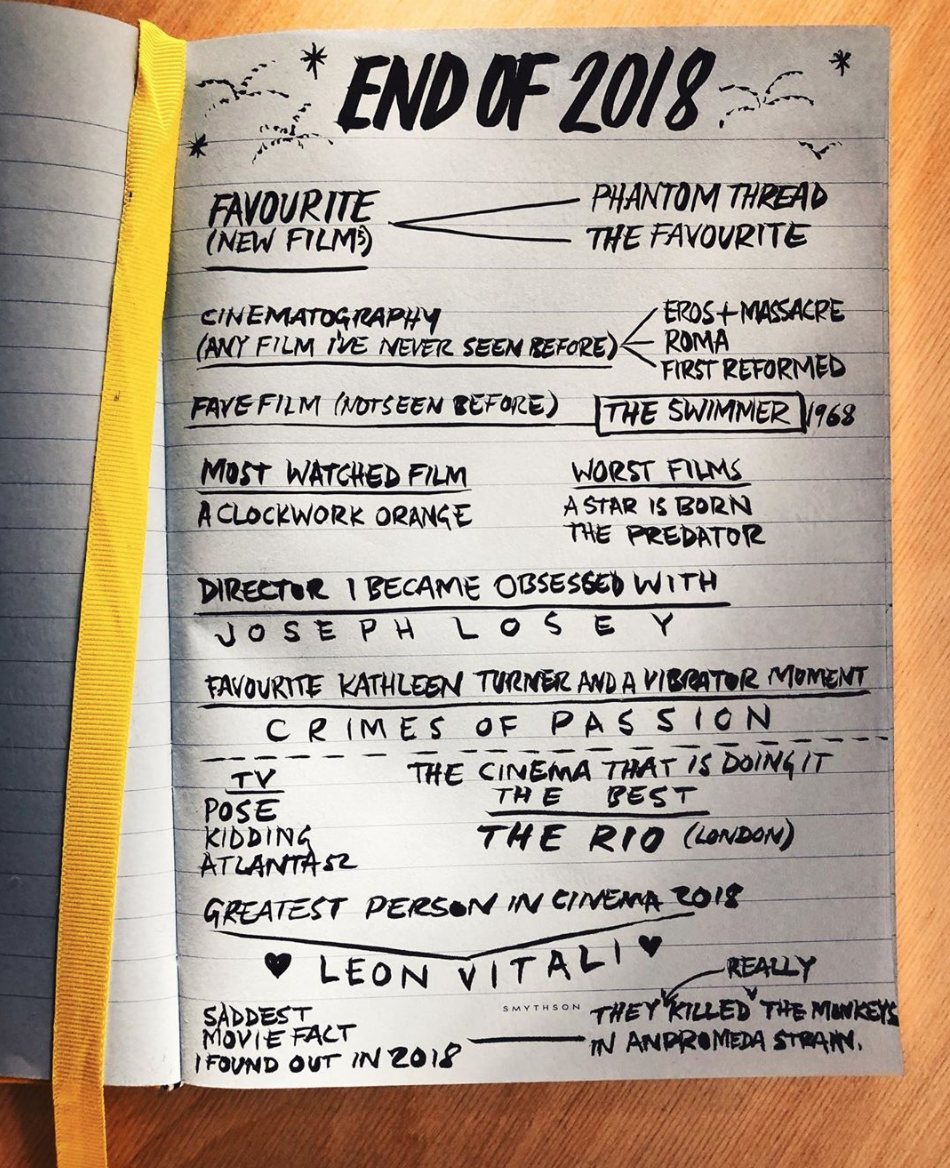 END OF 2018
FAVOURITE
(NEW FILMS)
PHANTOM THREAD
THE FAVOURITE
CINEMATOGRAPHY
(ANY FILM I'VE NEVER SEEN BEFORE)
EROS + MASSACRE
ROMA
FIRST REFORMED
FAVE FILM (NOT SEEN BEFORE) THE SWIMMER 1968
MOST WATCHED FILM
A CLOCKWORK ORANGE
WORST FILMS
A STAR IS BORN
THE PREDATOR
DIRECTOR I BECAME OBSESSED WITH
JOSEPH LOSEY
FAVOURITE KATHLEEN TURNER AND A VIBRATOR MOMENT
CRIMES OF PASSION
TV
POSE
KIDDING
ATLANTA S2
THE CINEMA THAT IS DOING IT
THE BEST
THE RIO (LONDON)
GREATEST PERSON IN CINEMA 2018
♥ LEON VITALI ♥
SADDEST
MOVIE FACT
I FOUND OUT IN 2018
SMYTHSON
REALLY
THEY KILLED THE MONKEYS
IN ANDROMEDA STRAIN.